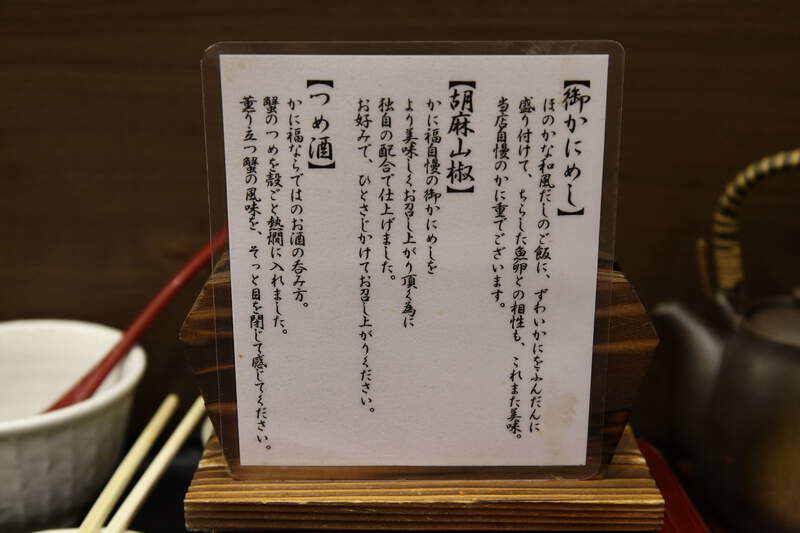 【御かにめし】
ほのかな和風だしのご飯に、ずわいかにをふんだんに
盛り付けて、ちらした魚卵との相性も、これまた美味。
当店自慢のかに重でございます。
【胡麻山椒】
かに福自慢の御かにめしを
より美味しくお召し上がり頂く為に
独自の配合で仕上げました。
お好みで、ひとさじかけてお召し上がりください。
【つめ酒】
かに福ならではのお酒の呑み方。
蟹のつめを殻ごと熱燗に入れました。
薫り立つ蟹の風味を、そっと目を閉じて感じてください。